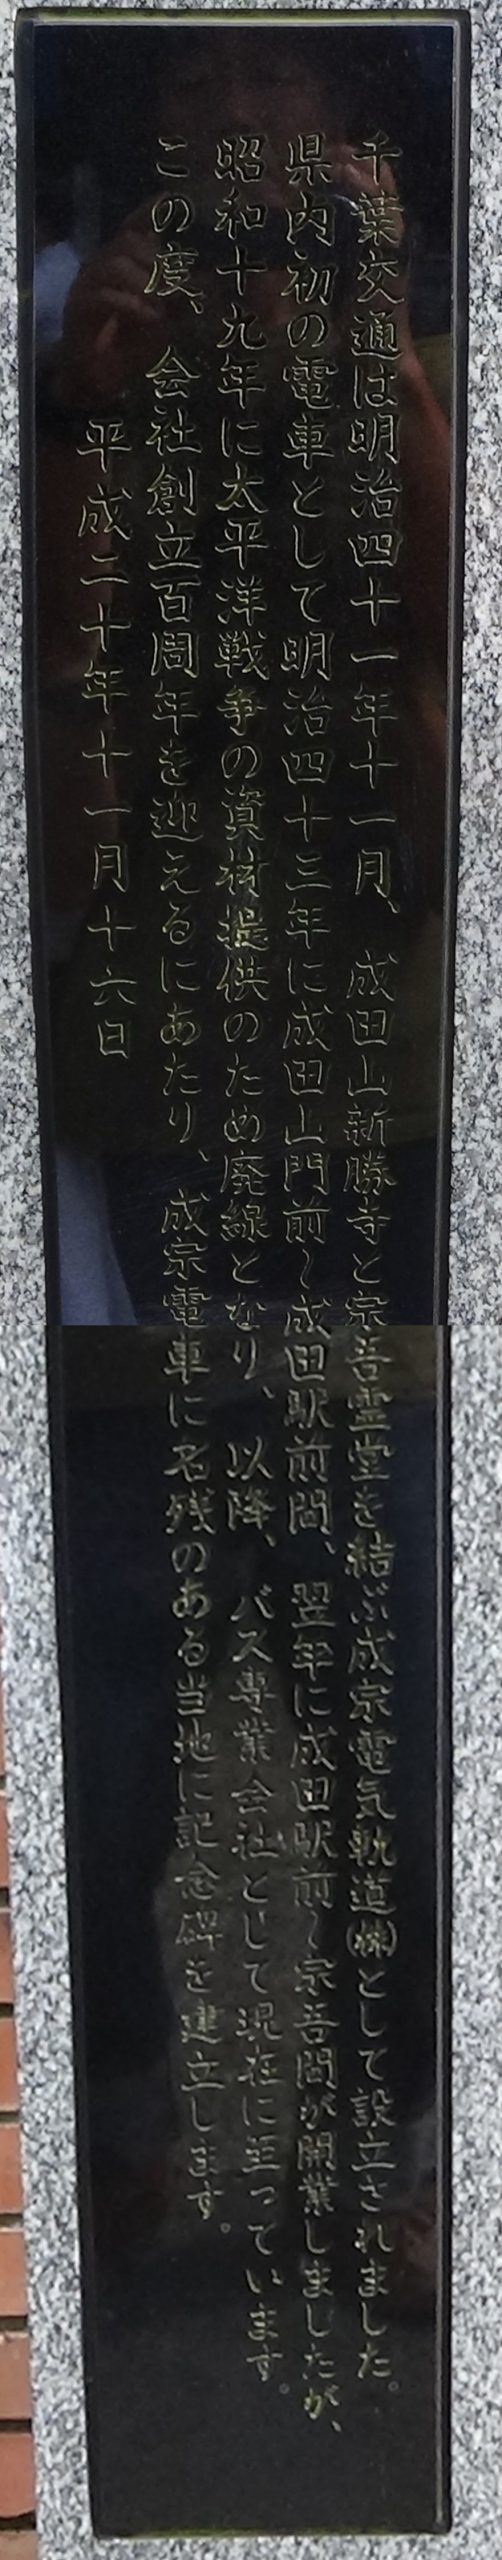 千葉交通は明治四十一年十一月、成田山新勝寺と宗吾霊堂を結ぶ成宗電気軌道㈱として設立されました。
県内初の電車として明治四十三年に成田山門前～成田駅前間、翌年に成田駅前～宗吾間が開業しましたが、
昭和十九年に太平洋戦争の資材提供のため廃線となり、以降、バス専業会社として現在に至っています。
この度、会社創立百周年を迎えるにあたり、成宗電車に名残のある当地に記念碑を建立します。
平成二十年十一月十六日